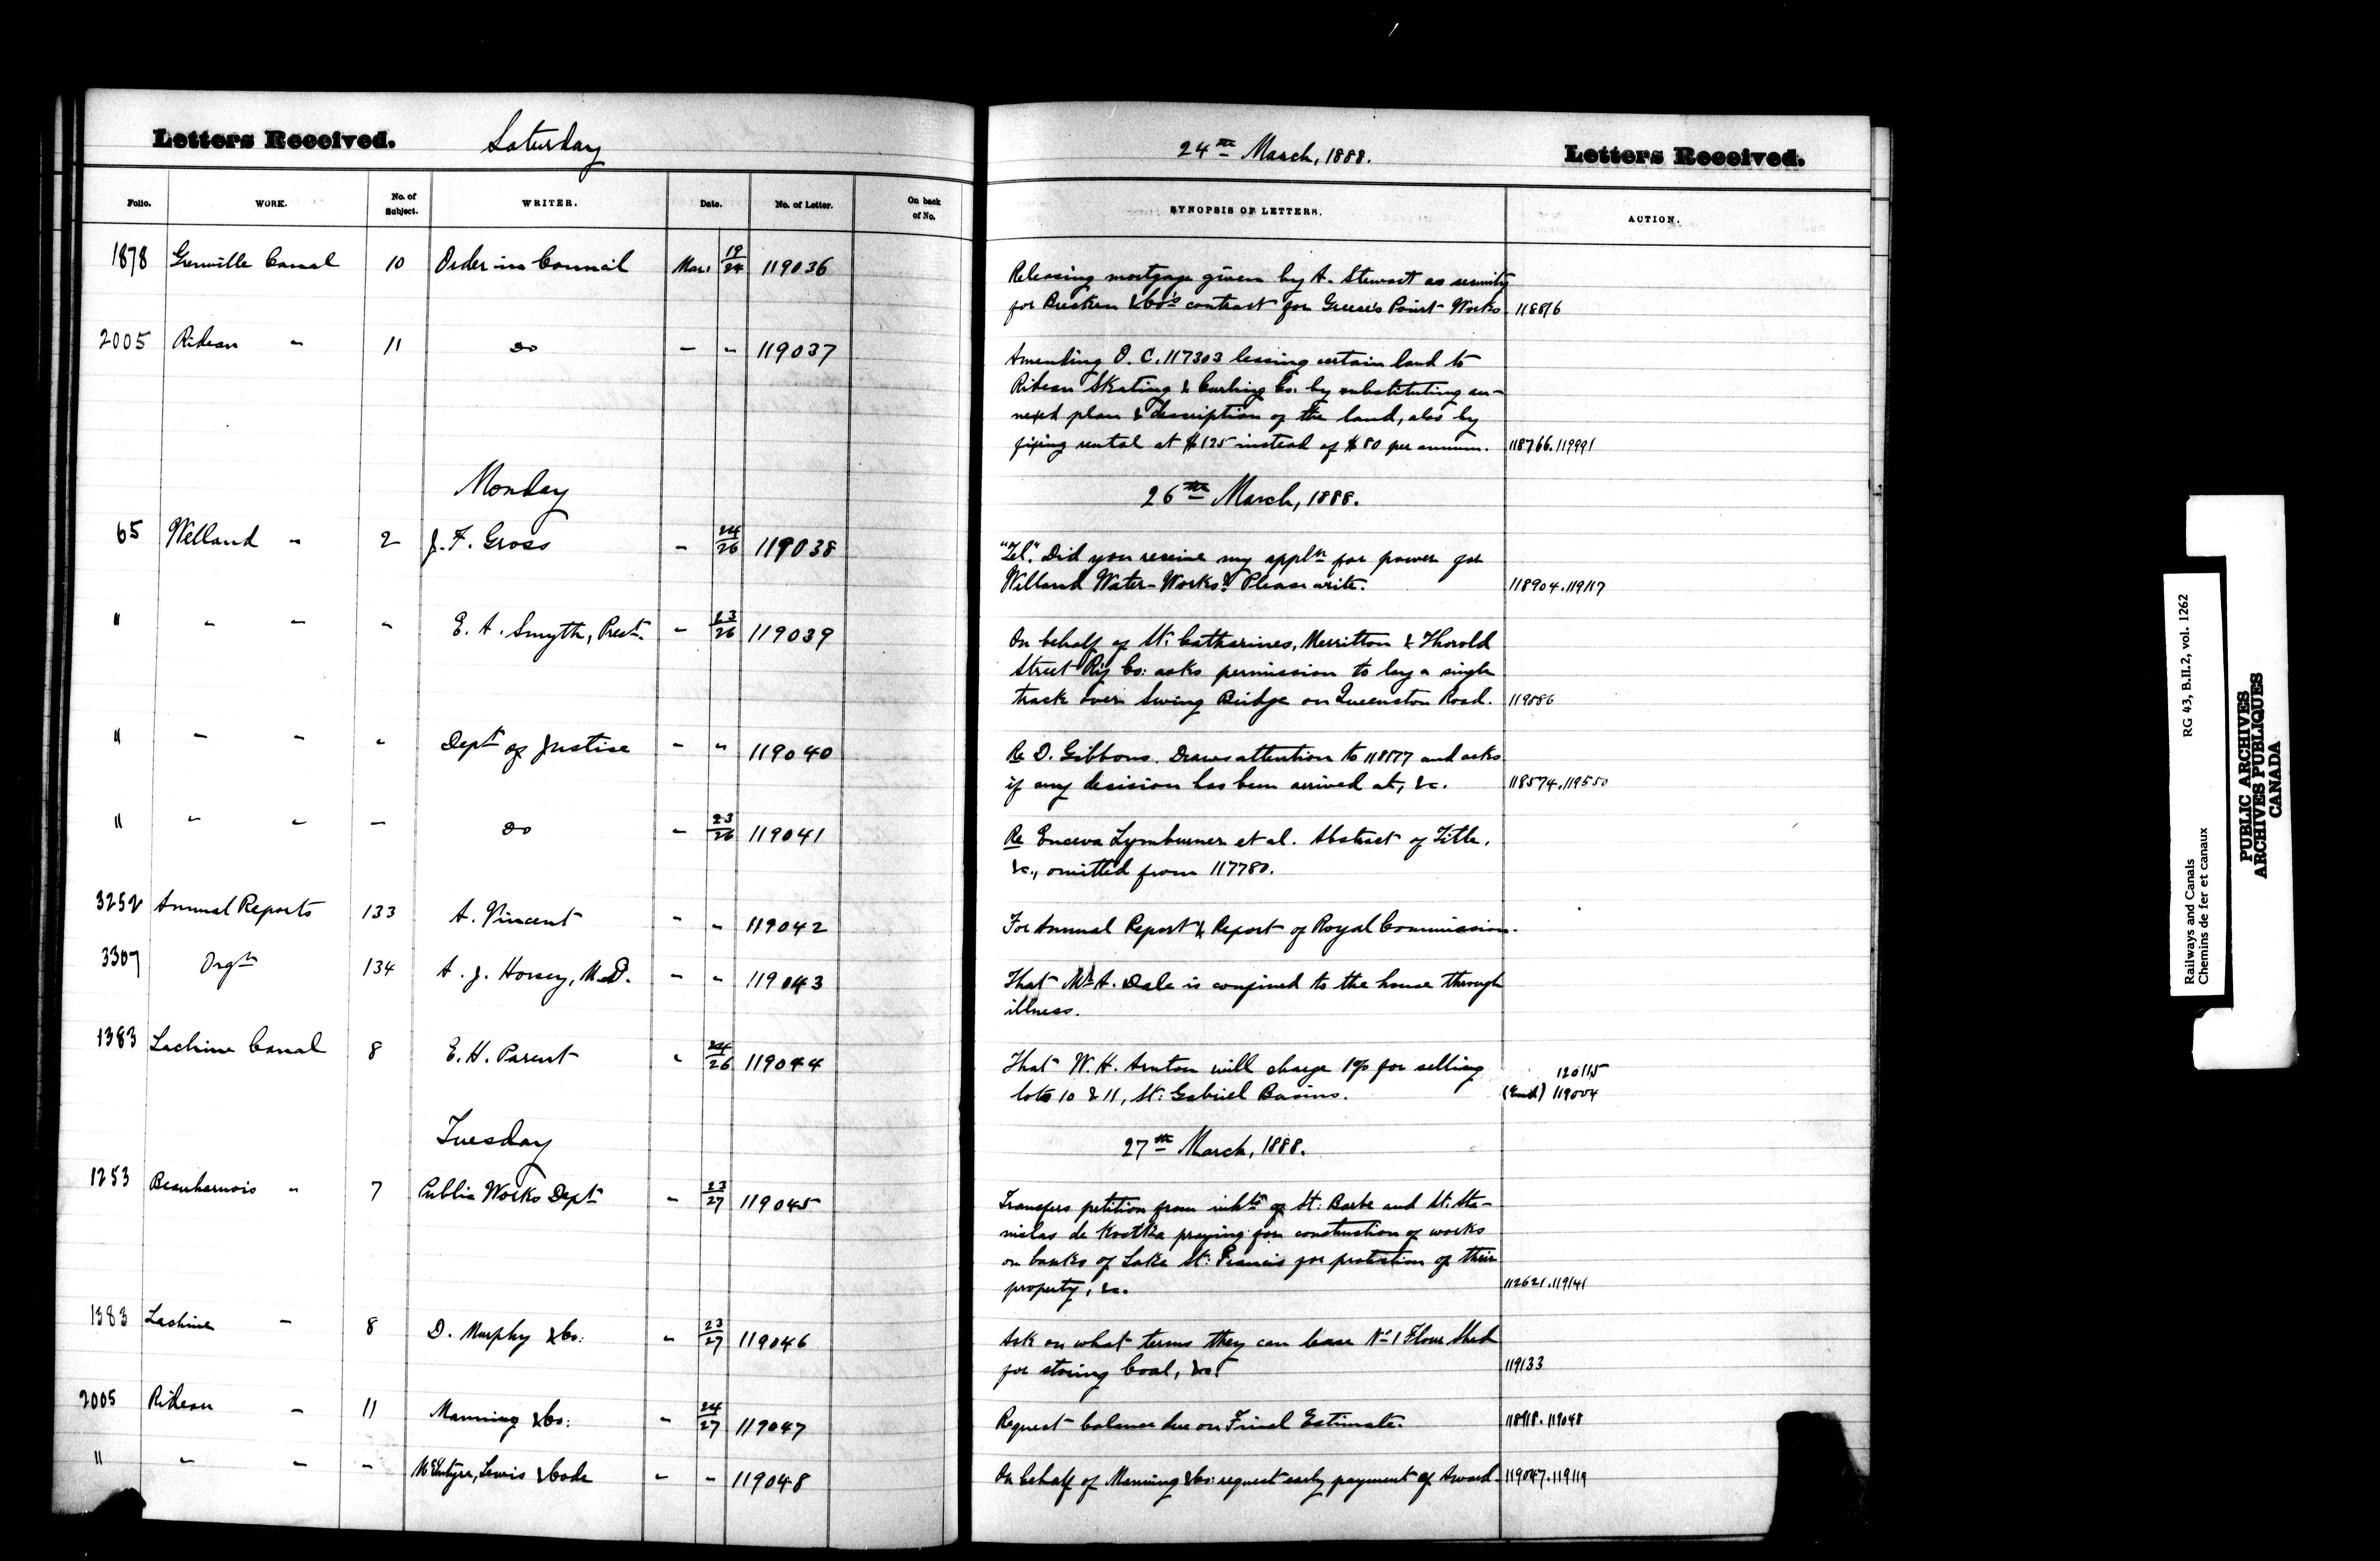 Letters Received. Saturday
Folio. WORK. No. of Subject. WRITER. Date. No. of Letter. On back of No.
1878 Grenville Canal 10 Order in Council Mar. 19/24 119036
2005 Rideau " 11 do - " 119037
Monday
65 Welland " 2 J. F. Gross - 24/26 119038
" " " " E. A. Smyth, Prest. - 23/26 119039
" " " " Dept of Justice - " 119040
" " " - do - 23/26 119041
3252 Annual Reports 133 A. Vincent " " 119042
3307 Orgn 134 A. J. Horsey, M.D. - " 119043
1383 Lachine Canal 8 E. H. Parent " 24/26 119044
Tuesday
1253 Beauharnois " 7 Public Works Dept - 23/27 119045
1383 Lachine - 8 D. Murphy & Co: " 23/27 119046
2005 Rideau - 11 Manning & Co: " 24/27 119047
" " - - McIntyre, Lewis & Code - " 119048
24th March, 1888. Letters Received.
SYNOPSIS OF LETTERS. ACTION.
Releasing mortgage given by A. Stewart as security
for & Co's contract for Greece's Point Works 118816
Amending O. C. 117303 leasing certain land to
Rideau Skating & Curling Co. by substituting an-
nexed plan & description of the land, also by
fixing rental at $125 instead of $80 per annum. 118766.119991
26th March, 1888.
"Tel." Did you receive my appln for power for
Welland Water-Works? Please write. 118904.119117
On behalf of St. Catharines, Merritton & Thorold
Street Ry Co: asks permission to lay a single
track over Swing Bridge on Queenston Road. 119086
Re D. Gibbons. Draws attention to 118577 and asks
if any decision has been arrived at, &c. 118574.119550
Re Lymburner et al. Abstract of Title,
&c., omitted from 117780.
For Annual Report & Report of Royal Commission.
That Mr A. Dale is confined to the house through
illness.
That W. H. Arnton will charge 1% for selling 120115
lots 10 & 11, St. Gabriel Basins. (End) 119004
27th March, 1888.
Transfers petition from inhts of St. Barbe and St. Sta-
nislas de Kostka praying for construction of works
on banks of Lake St. Francis for protection of their
property, &c. 112621.119141
Ask on what terms they can lease No 1 Flour Shed
for storing Coal, &c. 119133
Request balance due on Final Estimate. 118918.119048
On behalf of Manning & Co: request early payment of Award 119047.119119
Railways and Canals RG 43, B.II.2, vol. 1262
Chemins de fer et canaux
PUBLIC ARCHIVES
ARCHIVES PUBLIQUES
CANADA